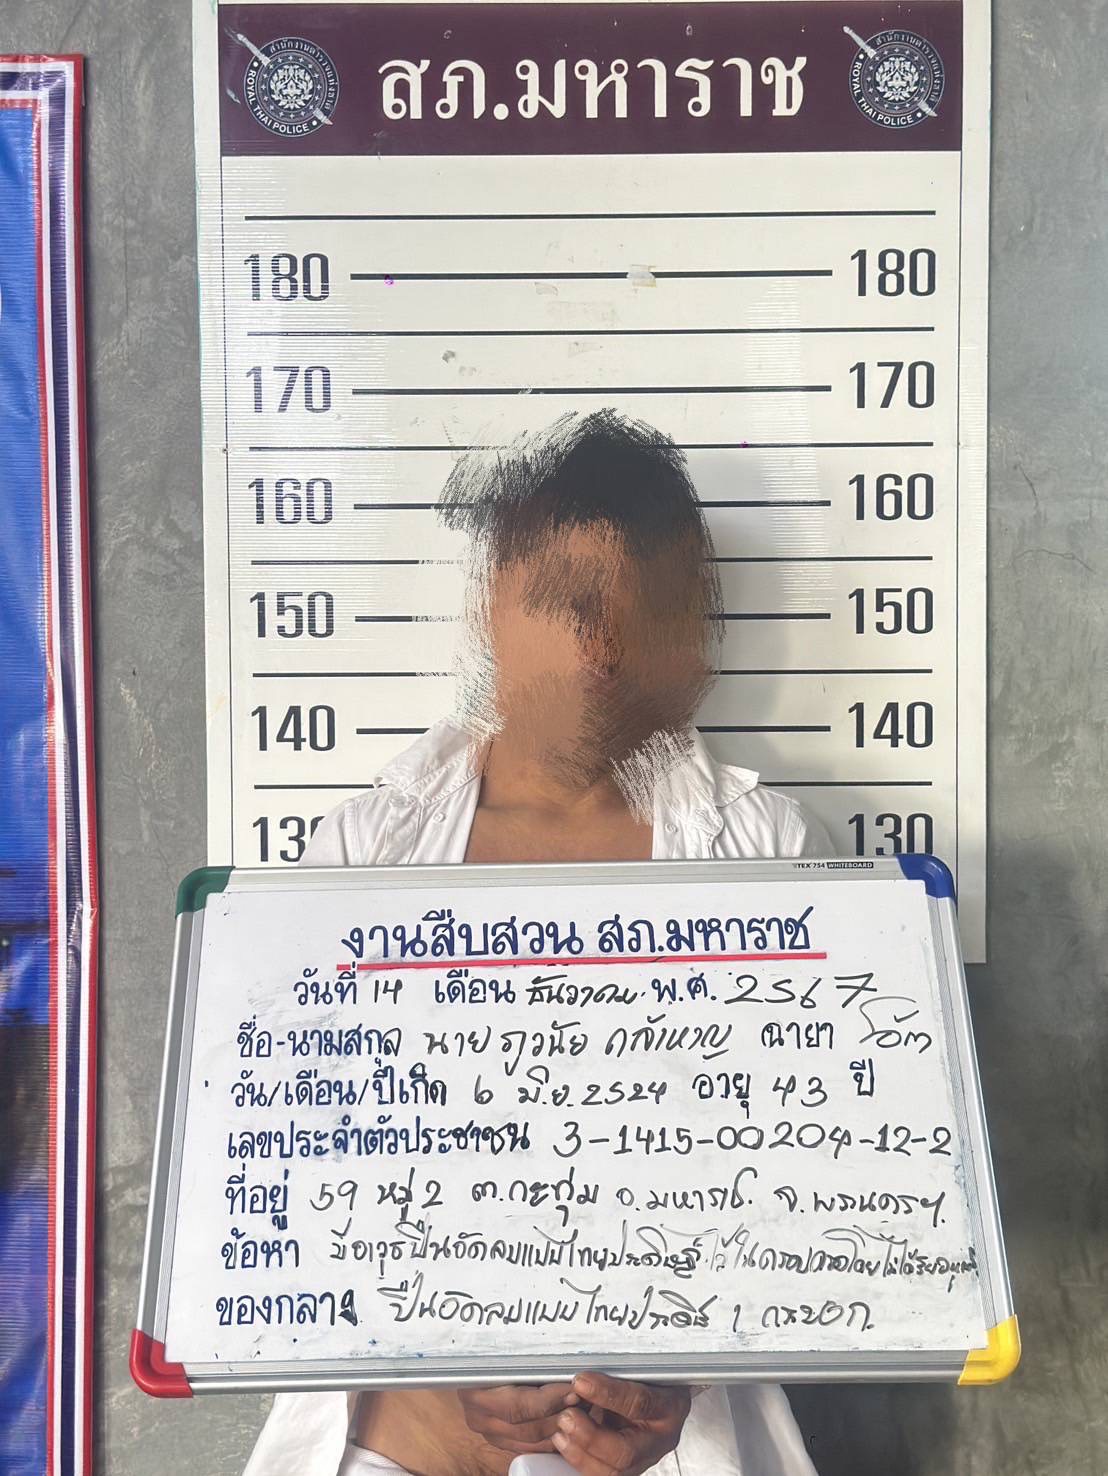 สำนักงานตำรวจแห่งชาติ
ROYAL THAI POLICE
สภ.มหาราช
สำนักงานตำรวจแห่งชาติ
ROYAL THAI POLICE
180 180
170 170
160 160
150 150
140 140
130 130
WHITEBOARD
งานสืบสวน สภ.มหาราช
วันที่ 14 เดือน ธันวาคม พ.ศ. 2567
ชื่อ-นามสกุล นาย ภูวนัย กล้าหาญ ฉายา โอ๋ต
วัน/เดือน/ปีเกิด 6 มิ.ย. 2524 อายุ 43 ปี
เลขประจำตัวประชาชน 3-1415-00204-12-2
ที่อยู่ 59 หมู่ 2 ต.กะทุ่ม อ.มหาราช จ.พระนครฯ
ข้อหา มีอาวุธปืนอัดลมแบบไทยประดิษฐ์ไว้ในครอบครองโดยไม่ได้รับอนุญาต
ของกลาง ปืนอัดลมแบบไทยประดิษ 1 กระบอก